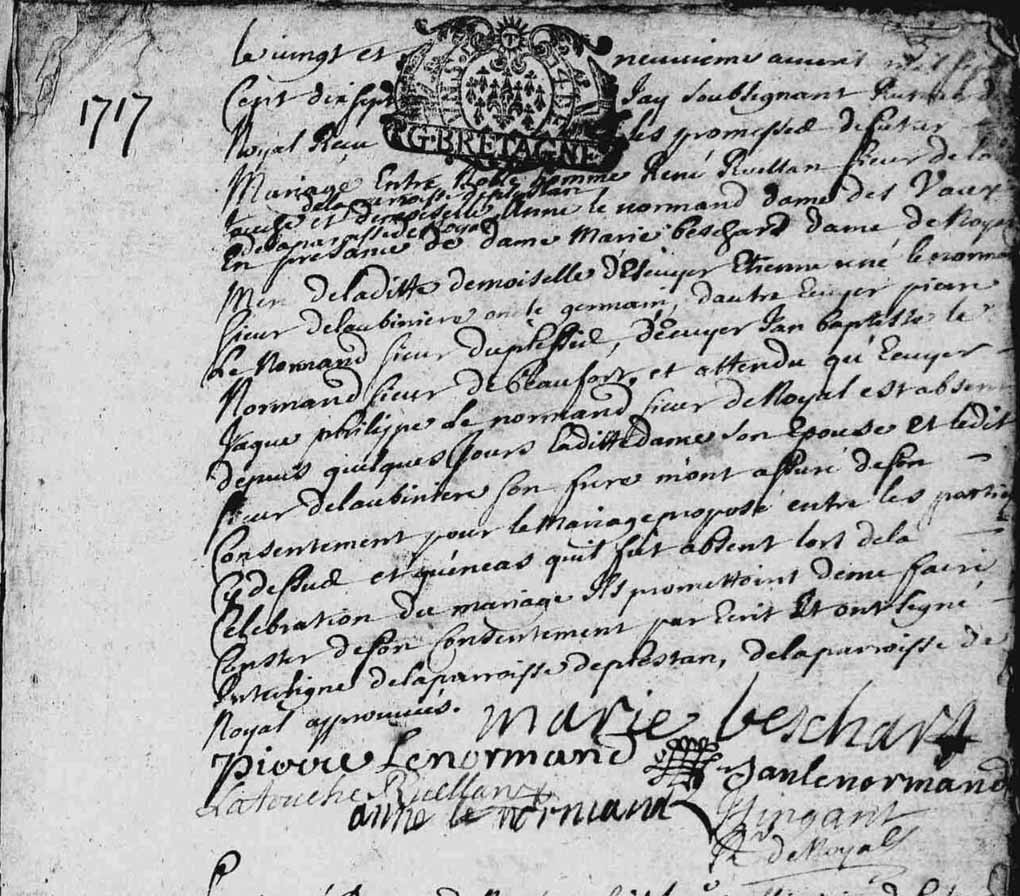 1717
le vingt et neuvieme auvril mil sept
Cent dix sept Jay soubsignant Recteur de
G·BRETAGNE
Royal Receu les promesses de futur
Mariage Entre Noble homme René Ruellan sieur de la
de la parroisse de plestan
touche et demoiselle Anne le normand dame des Vaux
de la parroisse de Royal
En presance de dame Marie beschard dame de Royal
Mere de laditte demoiselle d'Ecuyer Etienne rené le normand
sieur delaubiniere oncle germain, dautre Ecuyer pierre
Le Normand sieur duplessix, d'Ecuyer Jan baptiste le
Normand sieur de beaufort, et attendu qu'Ecuyer
Jaque philippe Le normand sieur de Royal est absent
depuis quelques Jours laditte dame son Epouse et ledit
sieur delaubiniere son frere m'ont assuré de son
Consentement pour le mariage proposé entre les parties
Cy dessus et qu'en cas quil fut absent lors de la
Celebration du mariage Ils promettoint de me faire
Conster de son Consentement par Ecrit Et ont signé
Interligne de la parroisse de plestan, de la parroisse de
Royal approuvés.
marie beschart
Pierre Lenormand Jan lenormand
Latouche Ruellan
anne le normand Hingant
Rr de Royal